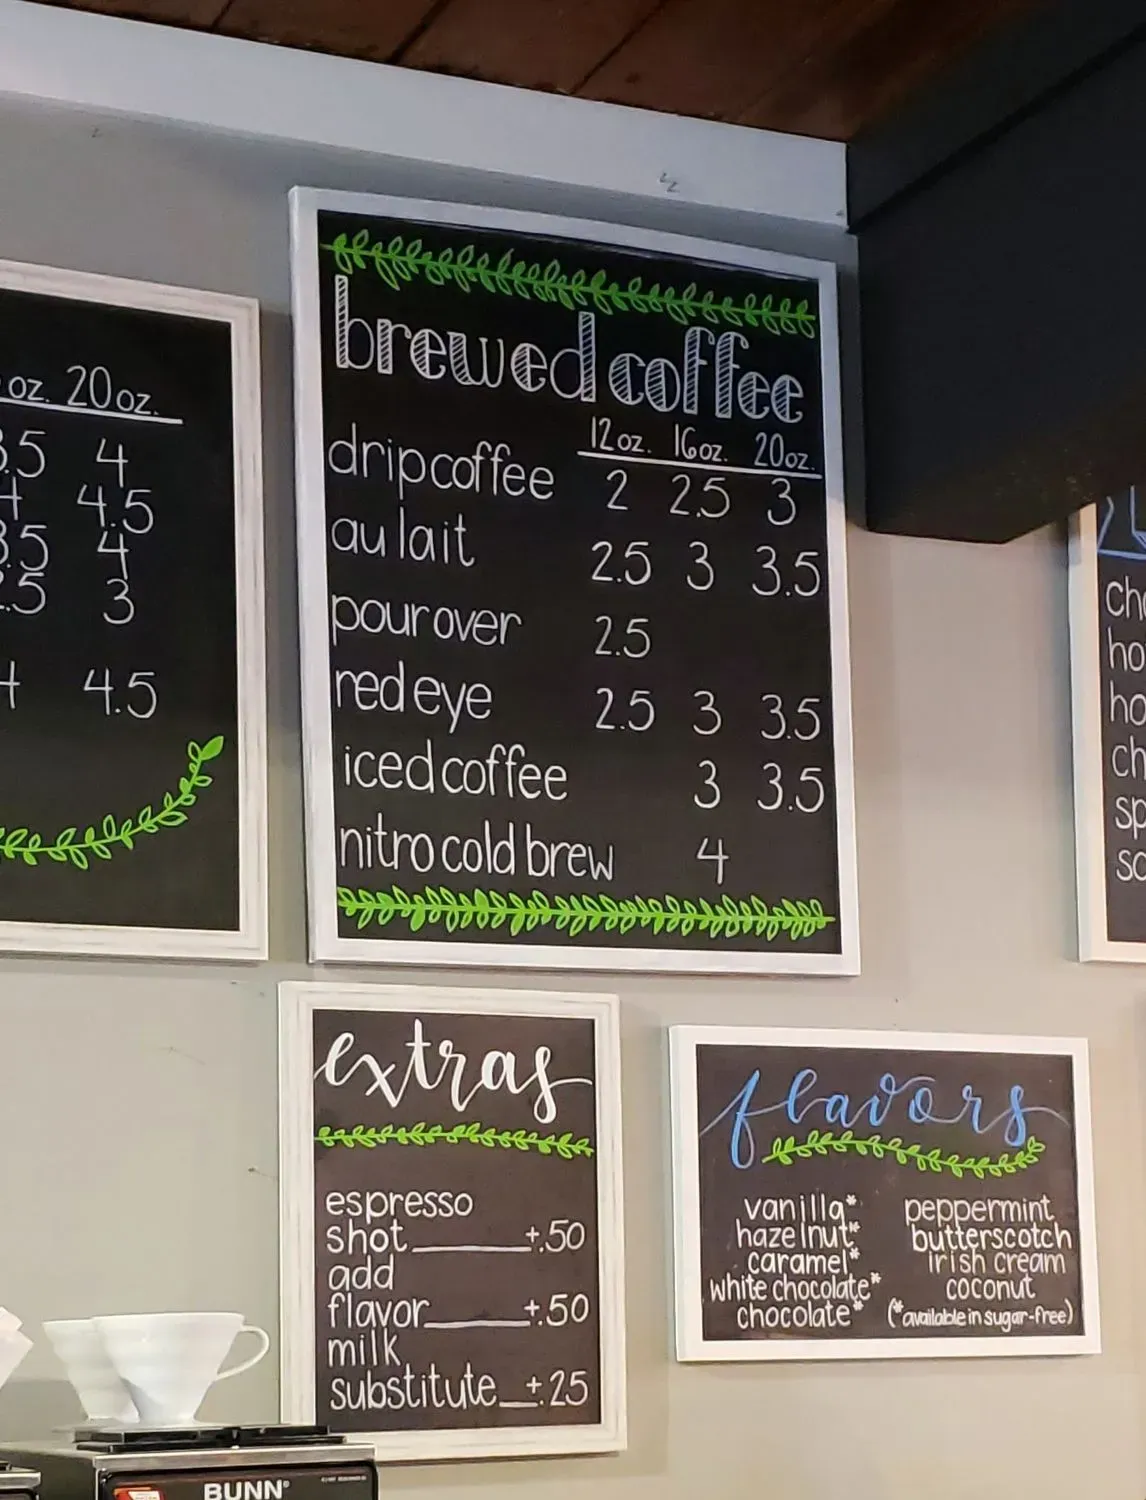 oz. 20oz.
3.5 4
4 4.5
3.5 4
2.5 3
4 4.5
brewed coffee
12oz. 16oz. 20oz.
drip coffee 2 2.5 3
au lait 2.5 3 3.5
pour over 2.5
red eye 2.5 3 3.5
iced coffee 3 3.5
nitro cold brew 4
extras
espresso
shot +.50
add
flavor +.50
milk
substitute +.25
flavors
vanilla* peppermint
hazelnut* butterscotch
caramel* irish cream
white chocolate* coconut
chocolate* (*available in sugar-free)
ho
ho
BUNN®